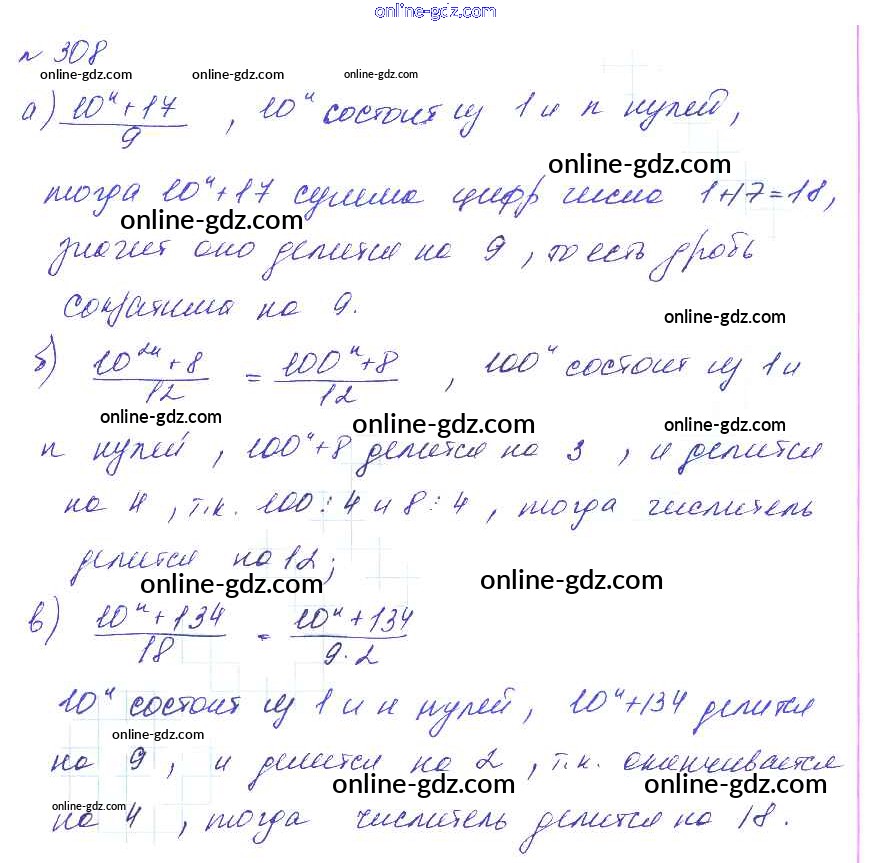 online-gdz.com
№ 308
online-gdz.com online-gdz.com online-gdz.com
а) (10ⁿ + 17)/9 , 10ⁿ состоит из 1 и n нулей,
online-gdz.com
тогда 10ⁿ + 17 сумма цифр числа 1+17=18,
online-gdz.com
значит оно делится на 9 , то есть дробь
сократима на 9.
online-gdz.com
б) (10²ⁿ + 8)/12 = (100ⁿ + 8)/12 , 100ⁿ состоит из 1 и
online-gdz.com online-gdz.com online-gdz.com
n нулей , 100ⁿ + 8 делится на 3 , и делится
на 4 , т.к. 100 : 4 и 8 : 4 , тогда числитель
делится на 12;
online-gdz.com online-gdz.com
в) (10ⁿ + 134)/18 = (10ⁿ + 134)/(9·2)
10ⁿ состоит из 1 и n нулей , 10ⁿ + 134 делится
online-gdz.com
на 9 , и делится на 2 , т.к. оканчивается
online-gdz.com online-gdz.com
online-gdz.com
на 4 , тогда числитель делится на 18 .